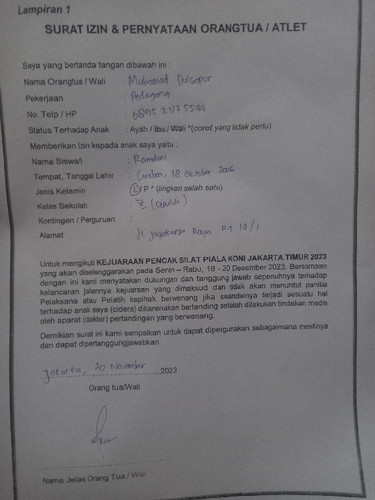 Lampiran 1
SURAT IZIN & PERNYATAAN ORANGTUA / ATLET
Saya yang bertanda tangan dibawah ini :
Nama Orangtua / Wali : Muhamad
Pekerjaan : Pedagang
No. Telp / HP :
Status Terhadap Anak : Ayah / Ibu / Wali *(coret yang tidak perlu)
Memberikan izin kepada anak saya yaitu :
Nama Siswa/i : Ramdani
Tempat, Tanggal Lahir : Cirebon, 18 Oktober 2006
Jenis Kelamin : L / P * (lingkari salah satu)
Kelas Sekolah :
Kontingen / Perguruan :
Alamat : Jl. Raya
Untuk mengikuti KEJUARAAN PENCAK SILAT PIALA KONI JAKARTA TIMUR 2023
yang akan diselenggarakan pada Senin – Rabu, 18 - 20 Desember 2023. Bersamaan
dengan ini kami menyatakan dukungan dan tanggung jawab sepenuhnya terhadap
kelancaran jalannya kejuaraan yang dimaksud dan tidak akan menuntut panitia
Pelaksana atau Pelatih kepihak berwenang jika seandainya terjadi sesuatu hal
terhadap anak saya (cidera) dikarenakan bertanding setelah dilakukan tindakan medis
oleh aparat (dokter) pertandingan yang berwenang.
Demikian surat ini kami sampaikan untuk dapat dipergunakan sebagaimana mestinya
dan dapat dipertanggungjawabkan.
Jakarta, 20 November 2023
Orang tua/Wali
Nama Jelas Orang Tua / Wali